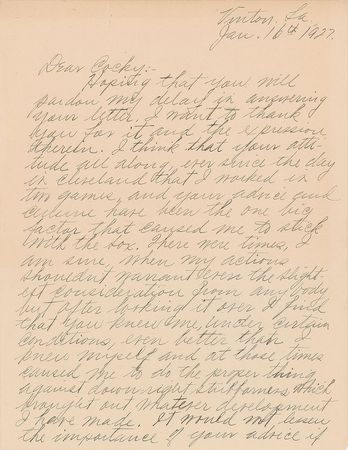 Vinton, La.
Jan. 16th 1927.
Dear Cocky:-
Hoping that you will
pardon my delay in answering
your letter, I want to thank
you for it and the expression
therein. I think that your atti-
tude all along, ever since the day
in Cleveland that I worked in
two games, and your advice and
have been the one big
factor that caused me to stick
with the box. There were times, I
am sure, when my actions
shouldn't warrant even the slight-
est consideration from any body
but after looking it over I find
that you knew me, under certain
conditions, even better than I
knew myself and at those times
caused me to do the proper thing
against down right stubborness which
brought out whatever development
I have made. It would not lessen
the importance of your advice if